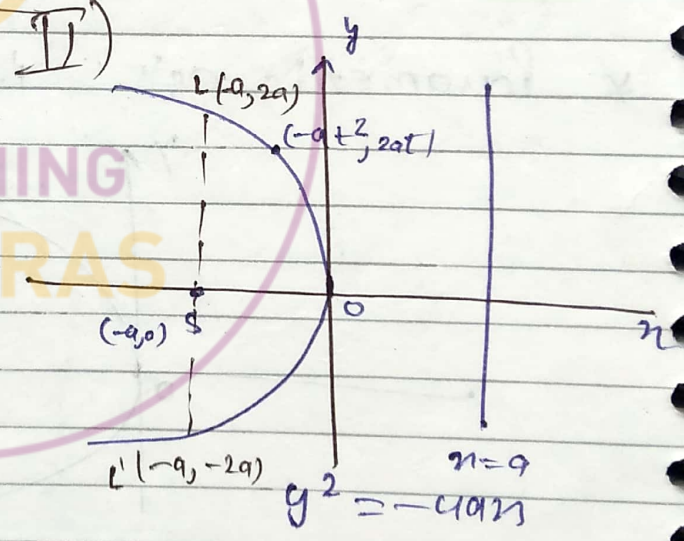 II)
y
L (-a, 2a)
(-at², 2at)
NING
RAS
(-a,0) S
O
x
L' (-a, -2a)
x=a
y² = -4ax